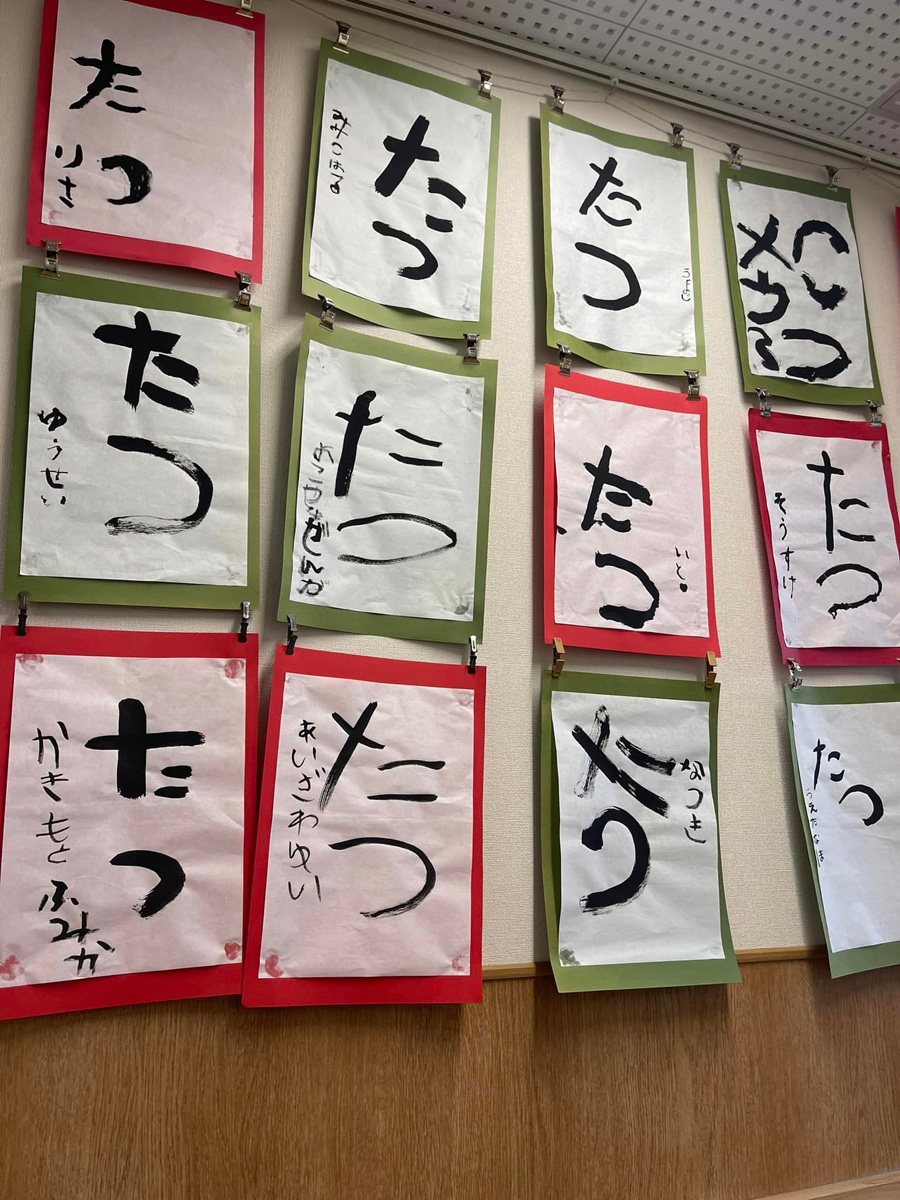 たつ
りさ
たつ
みやこはる
たつ
たつ
ゆうせい
たつ
たつ
いと
たつ
そうすけ
たつ
かきもと ふみか
たつ
あいざわゆい
たつ
なつき
たつ
うえだなほ